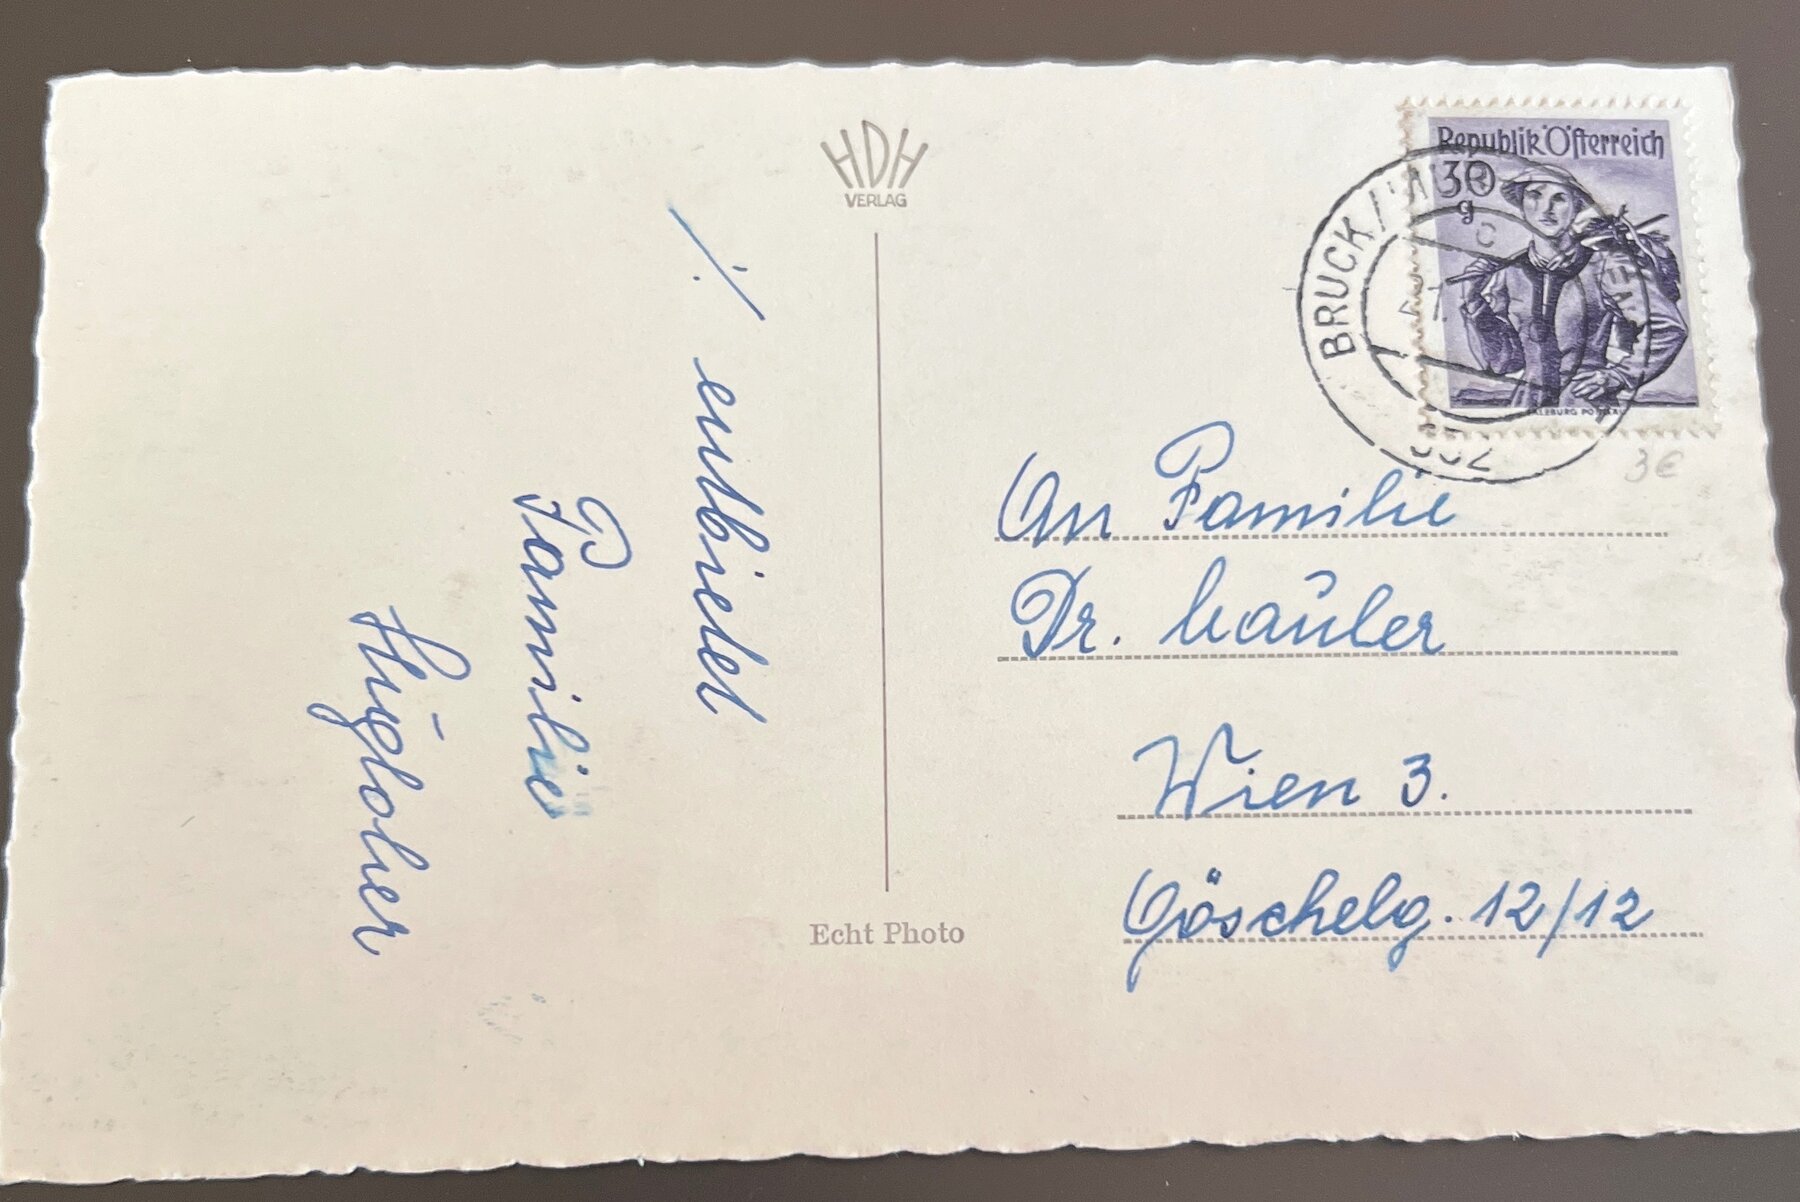 HDH
VERLAG
Republik Österreich
30
g
BRUCK /
SALZBURG PONGAU
3€
./.
entbietet
Familie
Huglober
An Familie
Dr.
Wien 3.
Göschelg. 12/12
Echt Photo